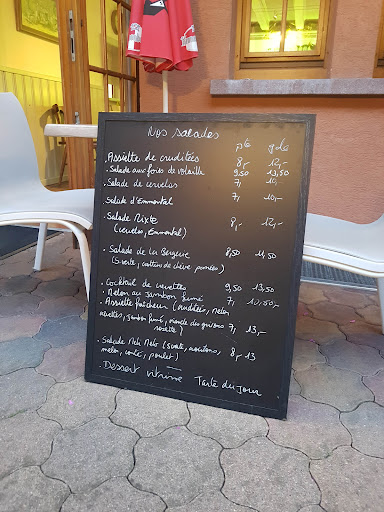 Nos salades
pte gde
Assiette de crudités 8,- 12,-
. Salade aux foies de volaille 9,50 13,50
Salade de cervelas 7,- 10,-
Salade d'Emmental 7,- 10,-
Salade Mixte 8,- 12,-
(cervelas, Emmental)
. Salade de la Bergerie 8,50 11,50
(Sverte, crottins de chèvre, pommes)
. Cocktail de crevettes 9,50 13,50
. Melon au jambon fumé 7,- 10,50,-
. Assiette fraîcheur (crudités, melon
crevettes, jambon fumé, viande des grisons 7,- 13,-
rosette)
. Salade Méli Mélo (Sverte,
melon, comté, poulet) 8,- 13
. Dessert vitrine Tarte du jour